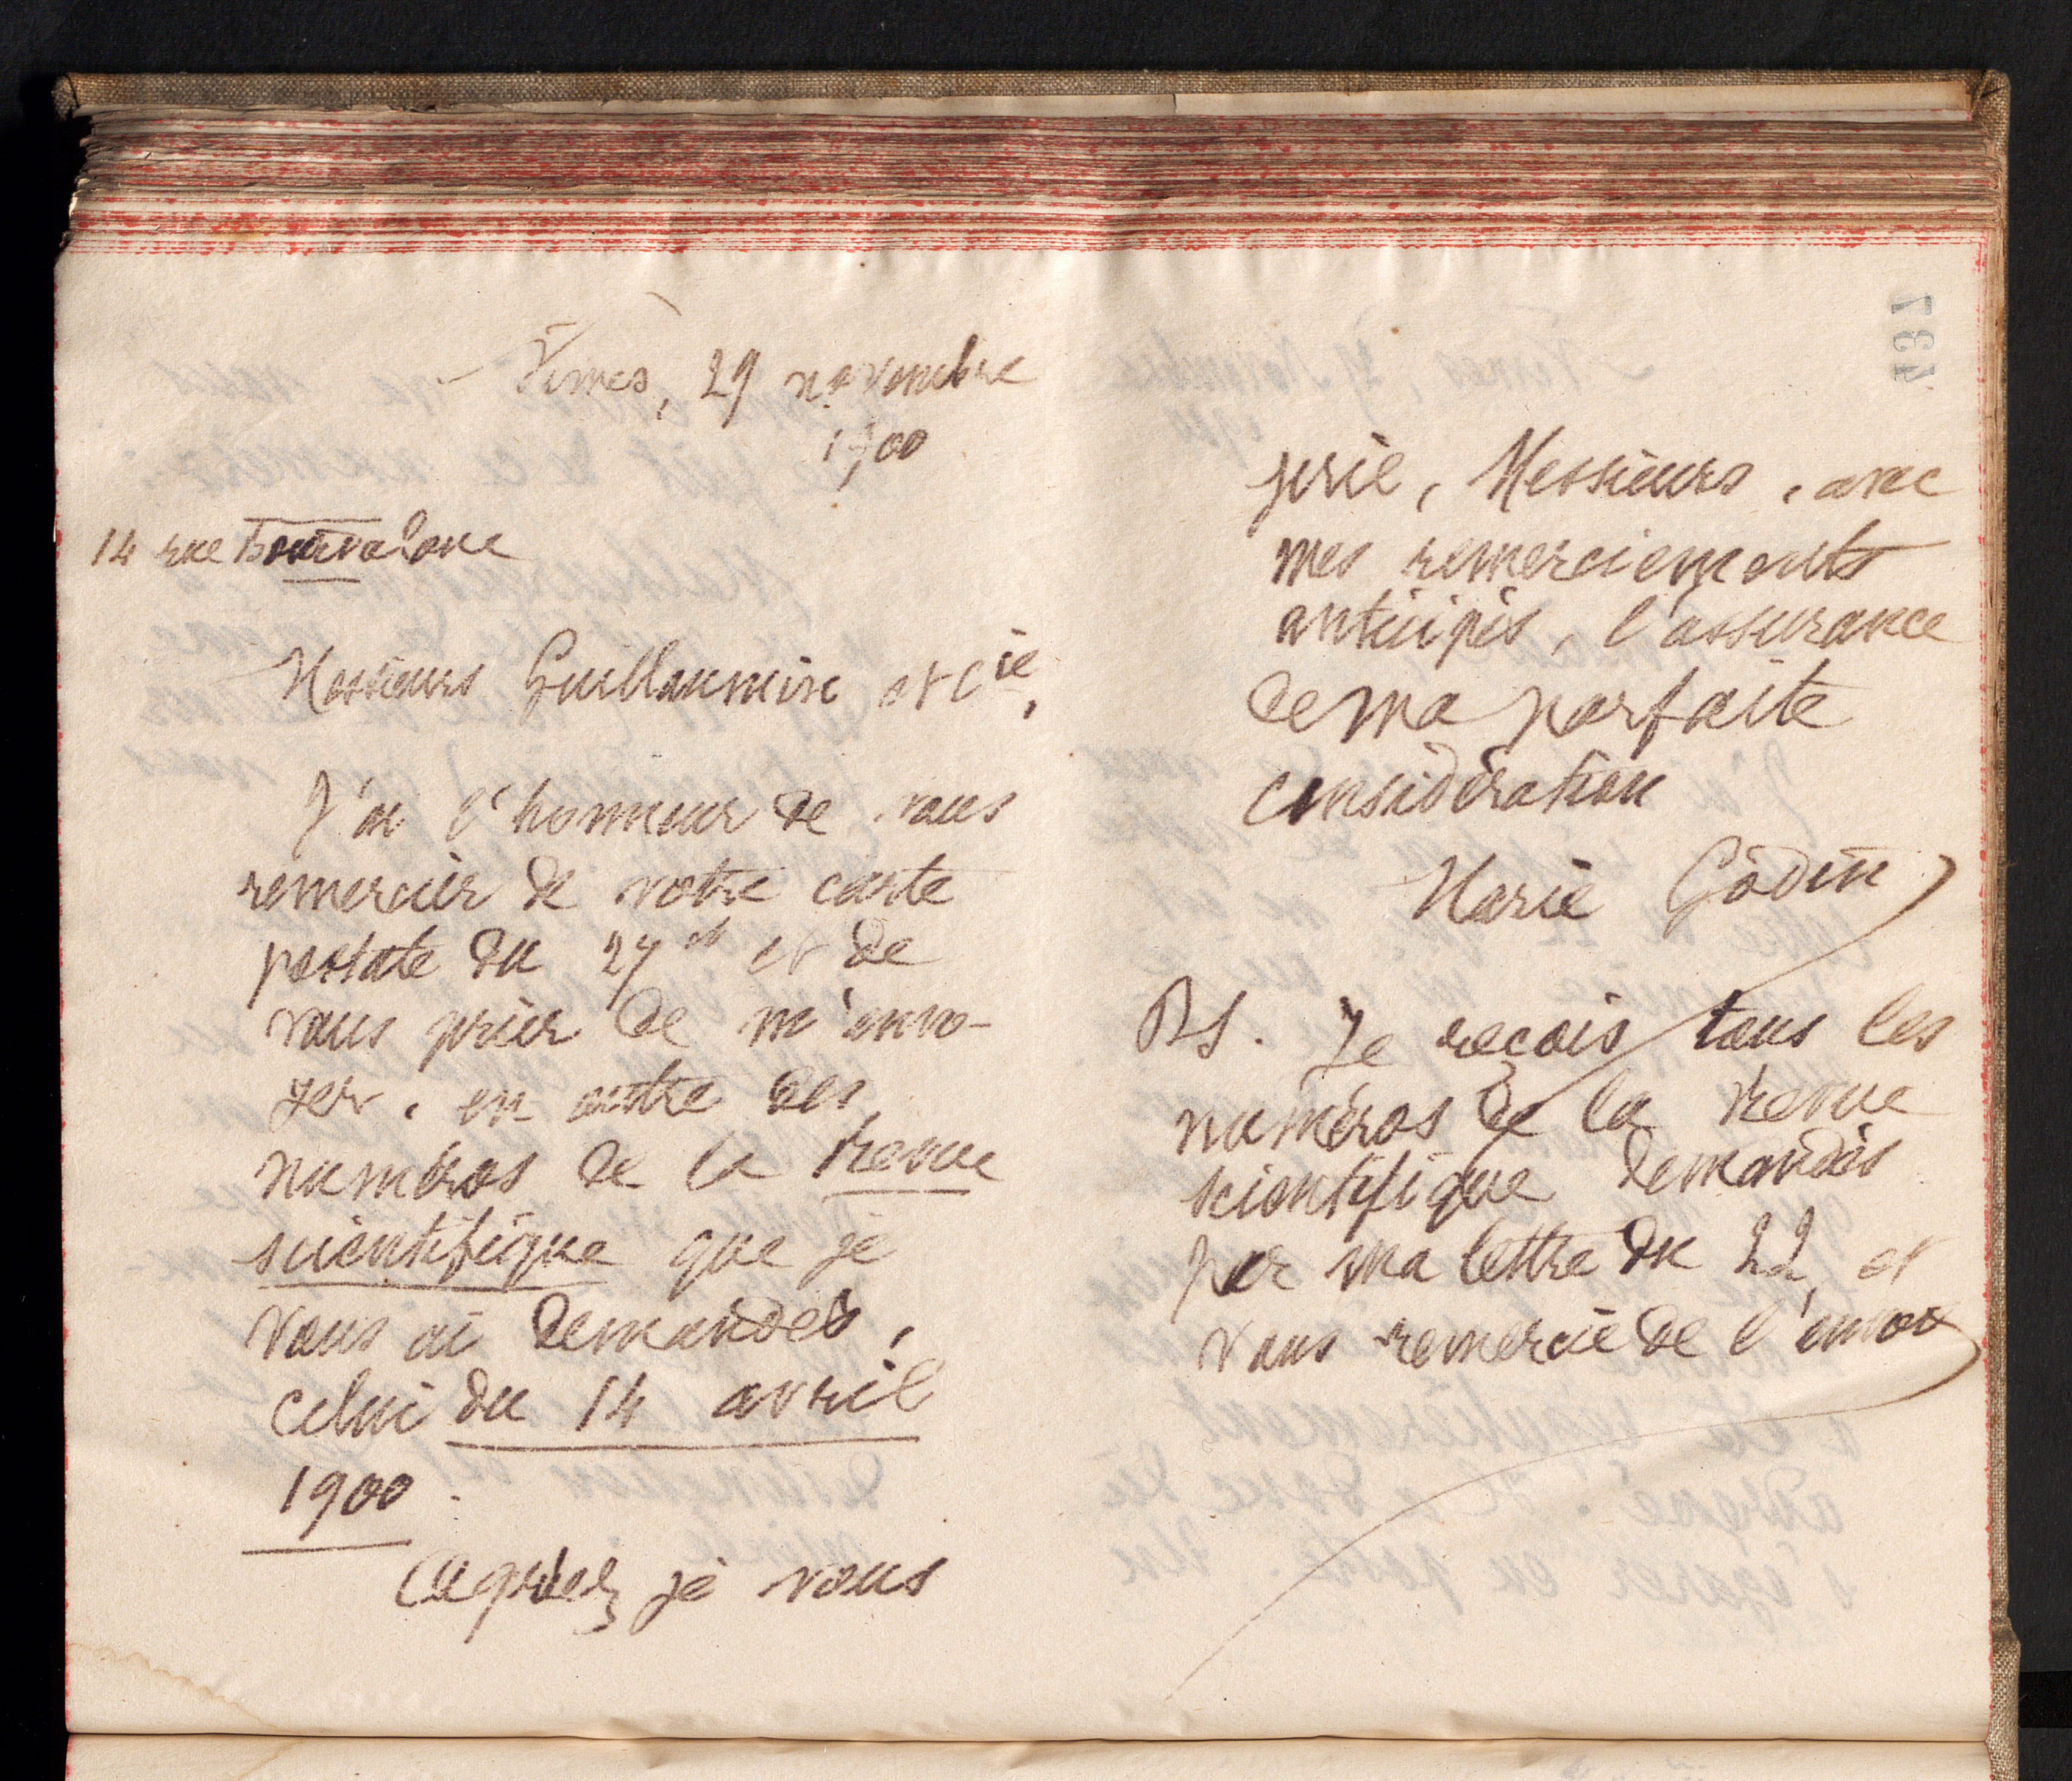 Nimes, 29 novembre
1900
14 rue Bourdaloue
Messieurs Guillaumin et Cie,
J'ai l'honneur de vous
remercier de votre carte
postale du 27 et de
vous prier de m'envo-
yer, en outre des
numéros de la Revue
scientifique que je
vous ai demandés,
celui du 14 avril
1900.
Agréez, je vous
prie, Messieurs, avec
mes remerciements
anticipés, l'assurance
de ma parfaite
considération
Marie Godin
PS. Je reçois tous les
numéros de la Revue
scientifique demandés
par ma lettre du 22, et
vous remercie de l'envoi